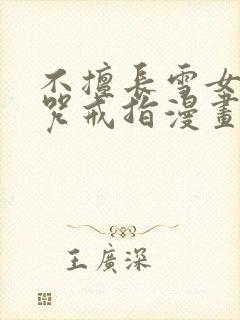 不擅長雪女
咒戒指漫畫
王廣深